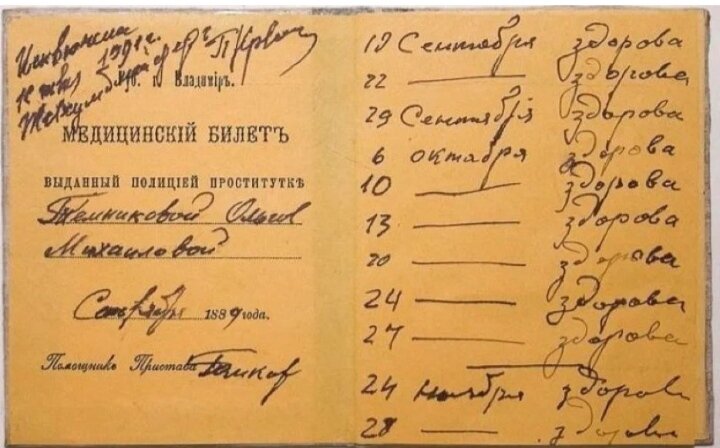 1991 г.
г. Владиміръ.
МЕДИЦИНСКІЙ БИЛЕТЪ
ВЫДАННЫЙ ПОЛИЦІЕЙ ПРОСТИТУТКѢ
Темниковой Ольгѣ
Михаиловой
Сентября 1889 года.
Помощникъ Пристава
19 Сентября здорова
22 — здорова
29 Сентября здорова
6 октября здорова
10 — здорова
13 — здорова
20 — здорова
24 — здорова
27 — здорова
24 ноября здорова
28 — здорова